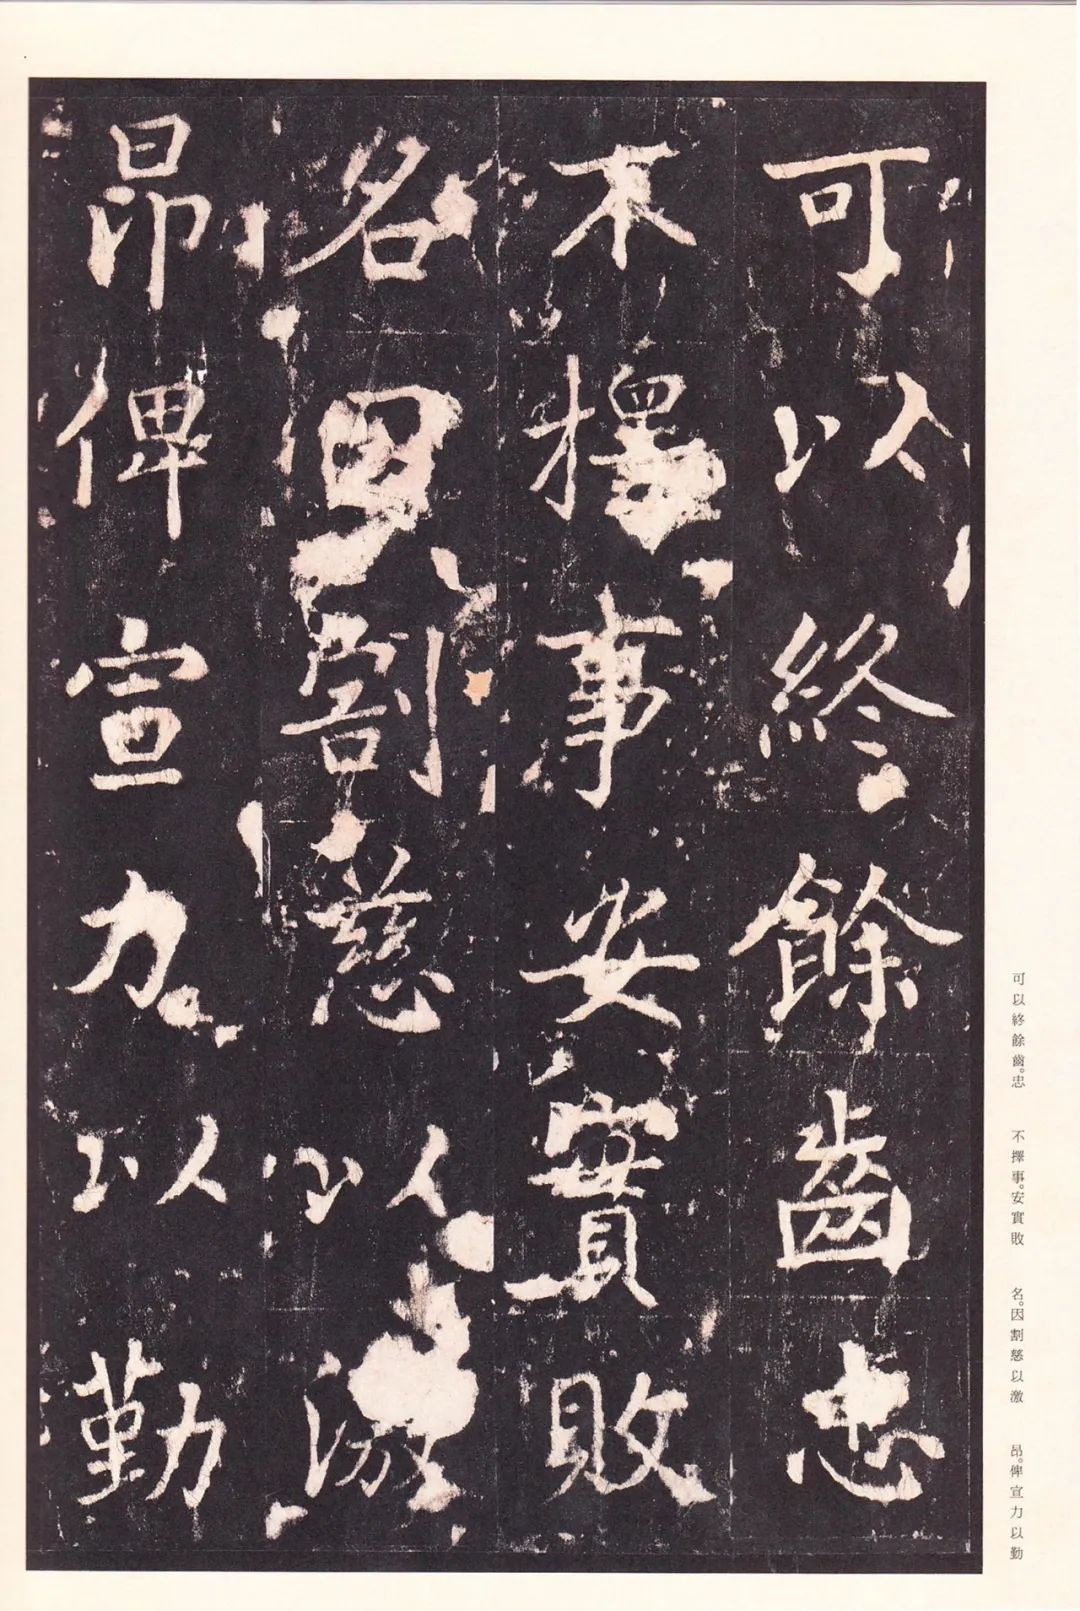 可以終餘齒忠
不擇事安實敗
名因割慈以激
昂俾宣力以勤
可以終餘齒。忠　不擇事。安實敗　名。因割慈以激　昂。俾宣力以勤